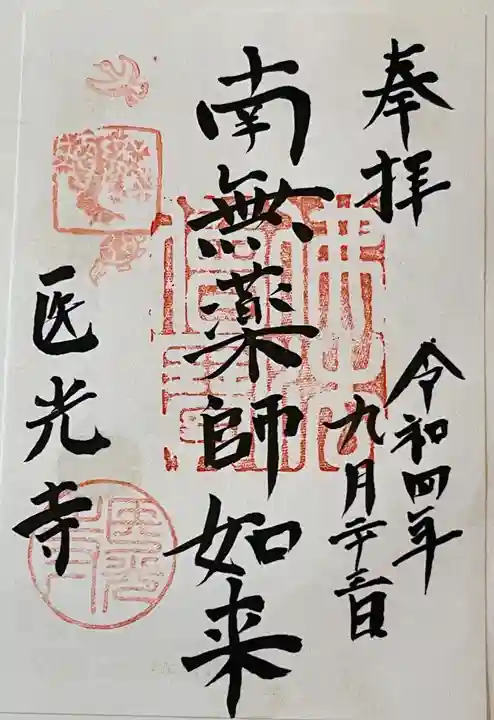 奉拝
令和四年
九月二十三日
南無薬師如来
医光寺